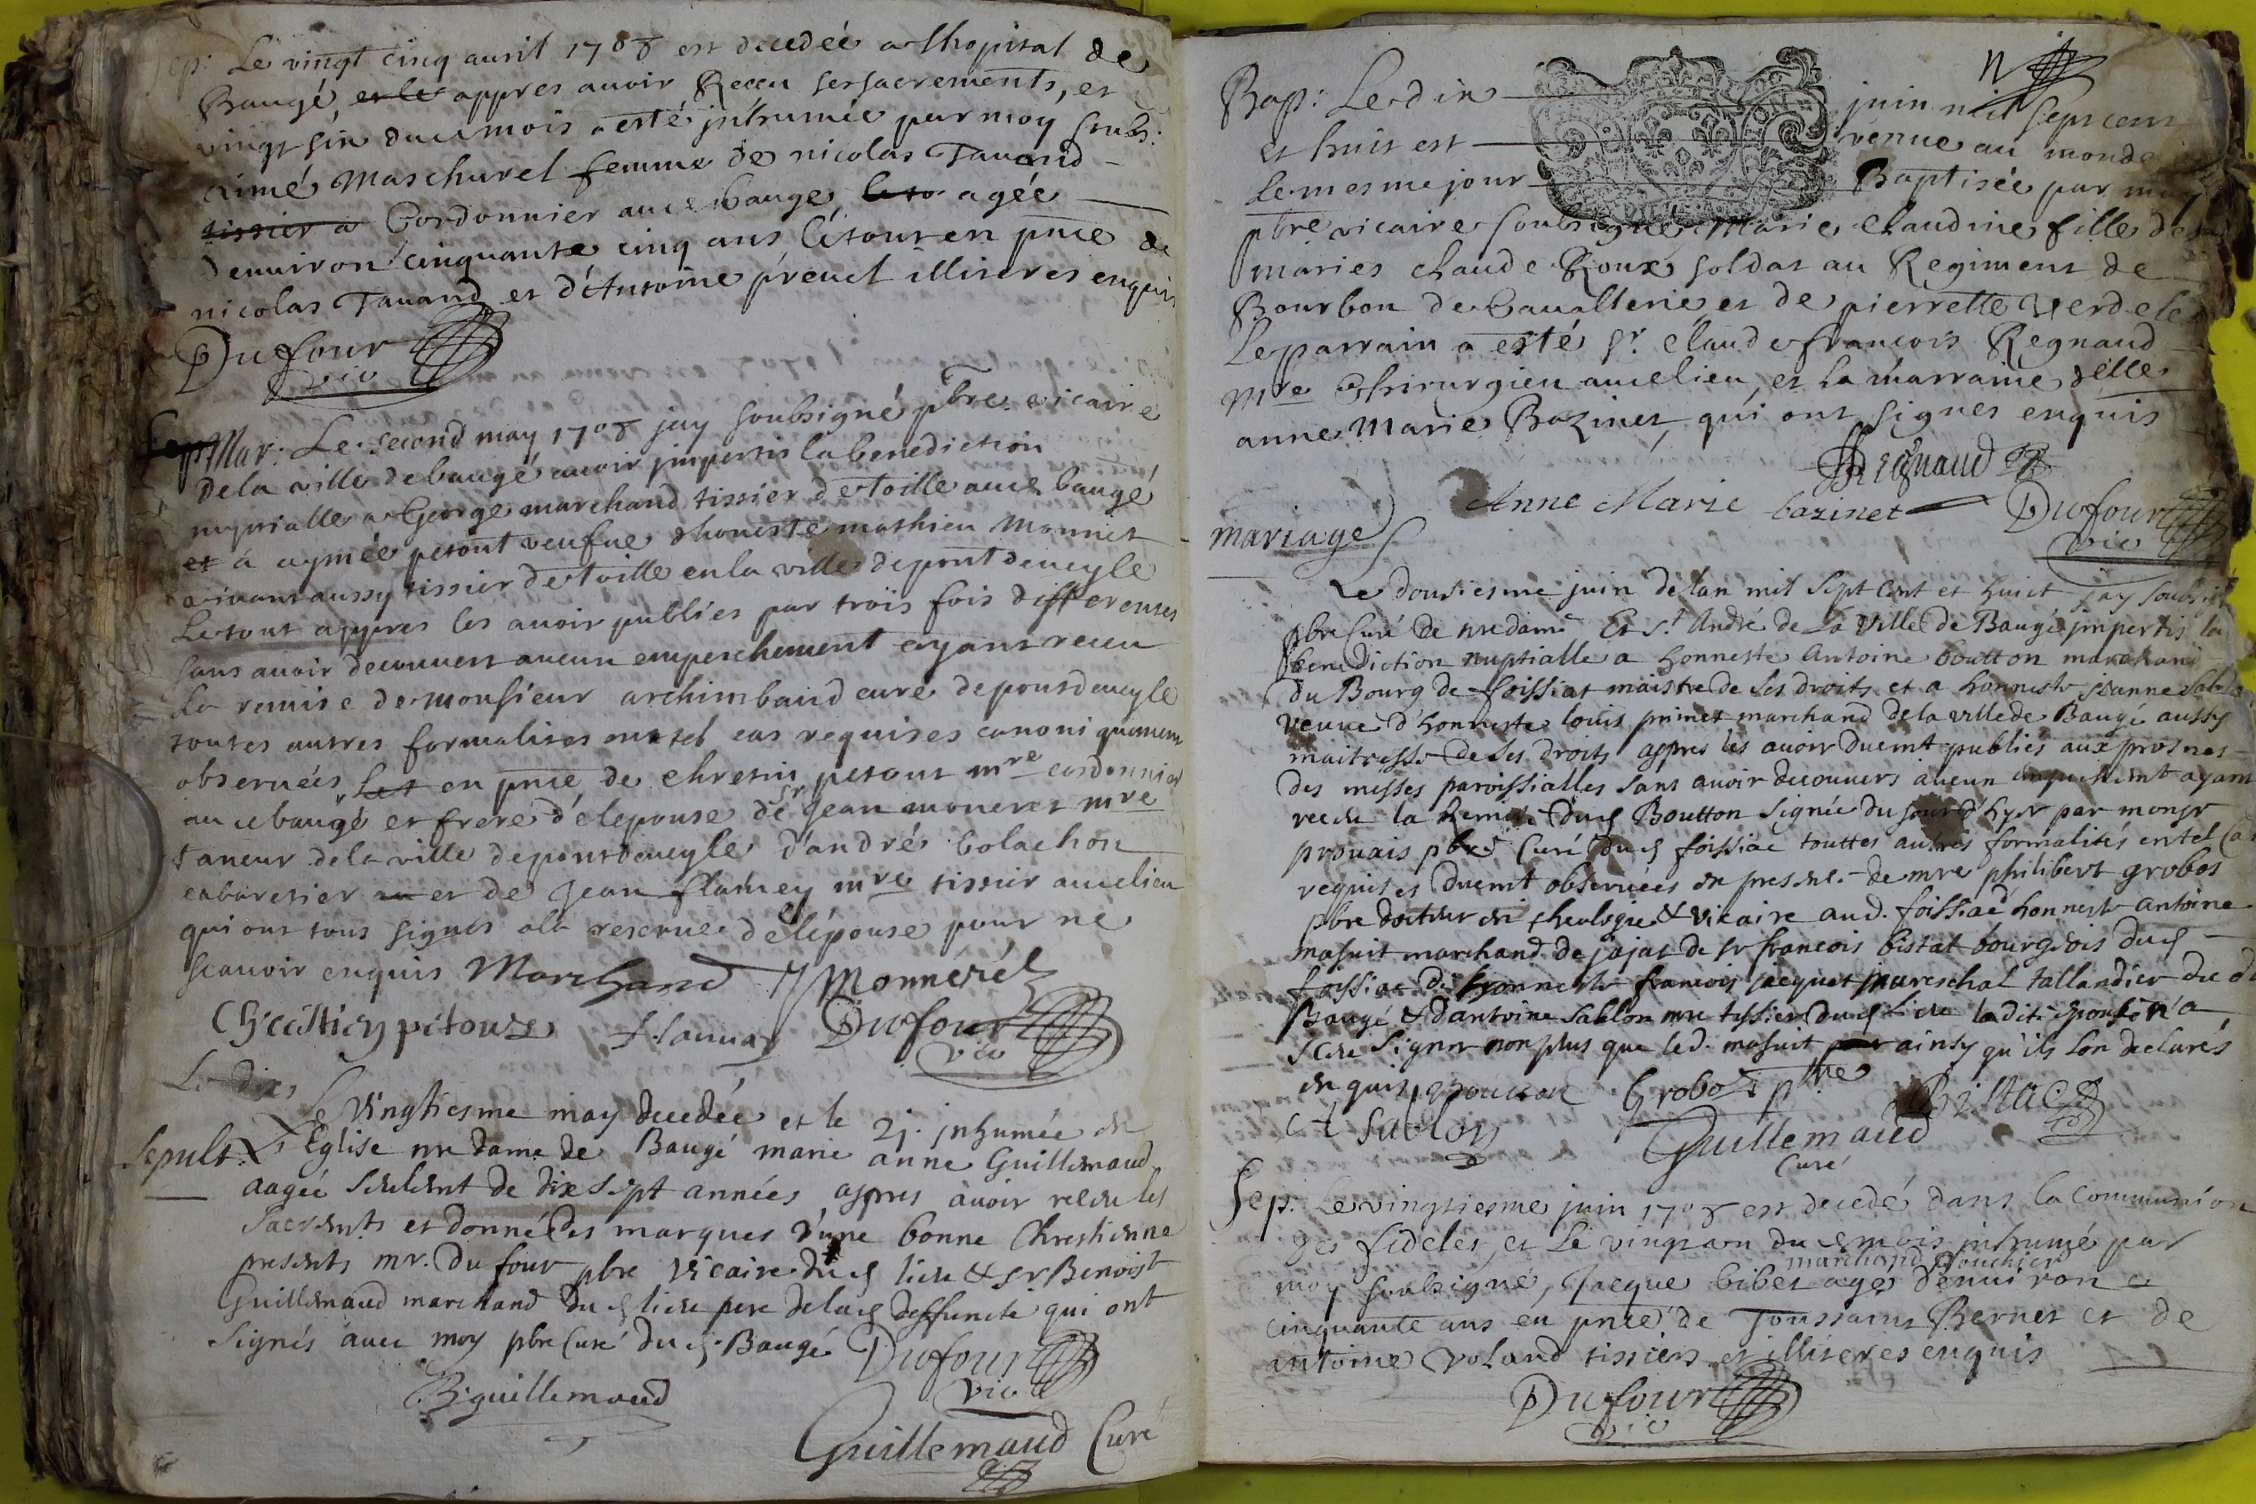 Sep: Le vingt cinq auril 1708 est decedée a lhopital de
Baugé et le appres auoir Receu ses sacrements, et
vingt six duce mois a esté jnhumée par moy soubs:
aimé Maschurel femme de nicolas Tauand
tissier a Cordonnier aude bauge, agée
denuiron cinquante cinq ans le tout en pnce de
nicolas Tauand et d'Antoine preuel illiteres enquis
Dufour
vic
Sep Mar: Le second may 1708 jay soubsigné pbre vicaire
de la ville de baugé auoir jmpertis la benediction
nuptialle a George marchand tissier de toille aud baugé
et a aymée petout veufue d'honeste mathieu Monnet
viuant aussy tissier de toille en la ville de pont de ueyle
Le tout appres les auoir publies par trois fois differentes
sans auoir decouuert aucun empeschement ayant receu
La remise de monsieur archimbaud curé de pontdeueyle
toutes autres formalites en tel cas requises canoniquement
obseruées, Le t en pnce de chretin petout mre cordonnier
au d baugé et frere de lepouse de sr Jean moneret mre
taneur de la ville de pontdeueyle d'andré bolachon
cabaretier au et de Jean flamey mre tissier aud lieu
qui ont tous signés a la reserue de lépouse pour ne
scauoir enquis Marchand J Monnerél
Chréstien pétout flamay Dufour
vic
Le dix
Le Vingtiesme may decedée et le 21. jnhumée en
Sepult. L'Eglise nre dame de Baugé marie anne Guillemaud
aagée seulemt de dix sept années appres auoir receu les
Sacremts et donné des marques d'une bonne Chrestienne
presents mr. Dufour pbre vicaire dud lieu & sr Benoist
Guillemaud marchand dud lieu pere de lad deffuncte qui ont
signés auec moy pbre Curé dud. Baugé Dufour
vic
B guillemaud
Guillemaud Curé
Bap: Le dix juin mil sept cent
et huit est venue au monde
le mesme jour Baptisée par moy
pbre vicaire soubsigné Marie Claudine fille des
maries claude Roux soldat au Regiment de
Bourbon de Cauallerie et de pierrette verdele
Le parrain a esté Sr. Claude francois Regnaud
Mre Chirurgien aud lieu, et la marraine delle
anne Marie Bazinet, qui ont signes enquis
Regnaud
Anne Marie bazinet Dufour
vic
mariage
Le dousiesme juin de lan mil sept cent et huict jay soubsigné
pbre Curé de nre dame Et St. André de La Ville de Baugé jmpertis la
benediction nuptialle a honneste Antoine boutton marchand
du Bourg de foissiat maistre de ses droits et a honneste jeanne
veuue d'honneste louis perinet marchand de la ville de Baugé aussy
maitresse de ses droits appres les auoir duemt publiés aux prosnes
des messes paroissialles sans auoir decouuers aucun empechemt ayant
receu la Remise dud Boutton Signée du jourd'hyer par monsr
prouais pbre Curé dud foissiac touttes autres formalités en tel Cas
requises duemt obseruées en presene de mre philibert grobos
pbre docteur en theologie & vicaire aud. foissiac d honneste antoine
masuit marchand de jajat de sr francois bistat bourgeois dud
foissiac de honneste francois jacquet mareschal tallandier du d
Baugé & d'antoine Sablon mre tissier dud Lieu la dite epouse n'a
sceu signer non plus que led. masuit ainsy qu'ils lon declarés
enquis boutton Grobos pbre Bistac
A Sablon Guillemaud
Curé
Sep: Le vingtiesme juin 1708 est decedé dans la Communion
des fideles, et Le vingt un du d mois jnhumé par
marchand bouchier
moy soubsigné, Jacque bibet agé denuiron
cinquante ans en pnce de Toussaint Bernet et de
antoine Voland tissiers et illiteres enquis
Dufour
vic